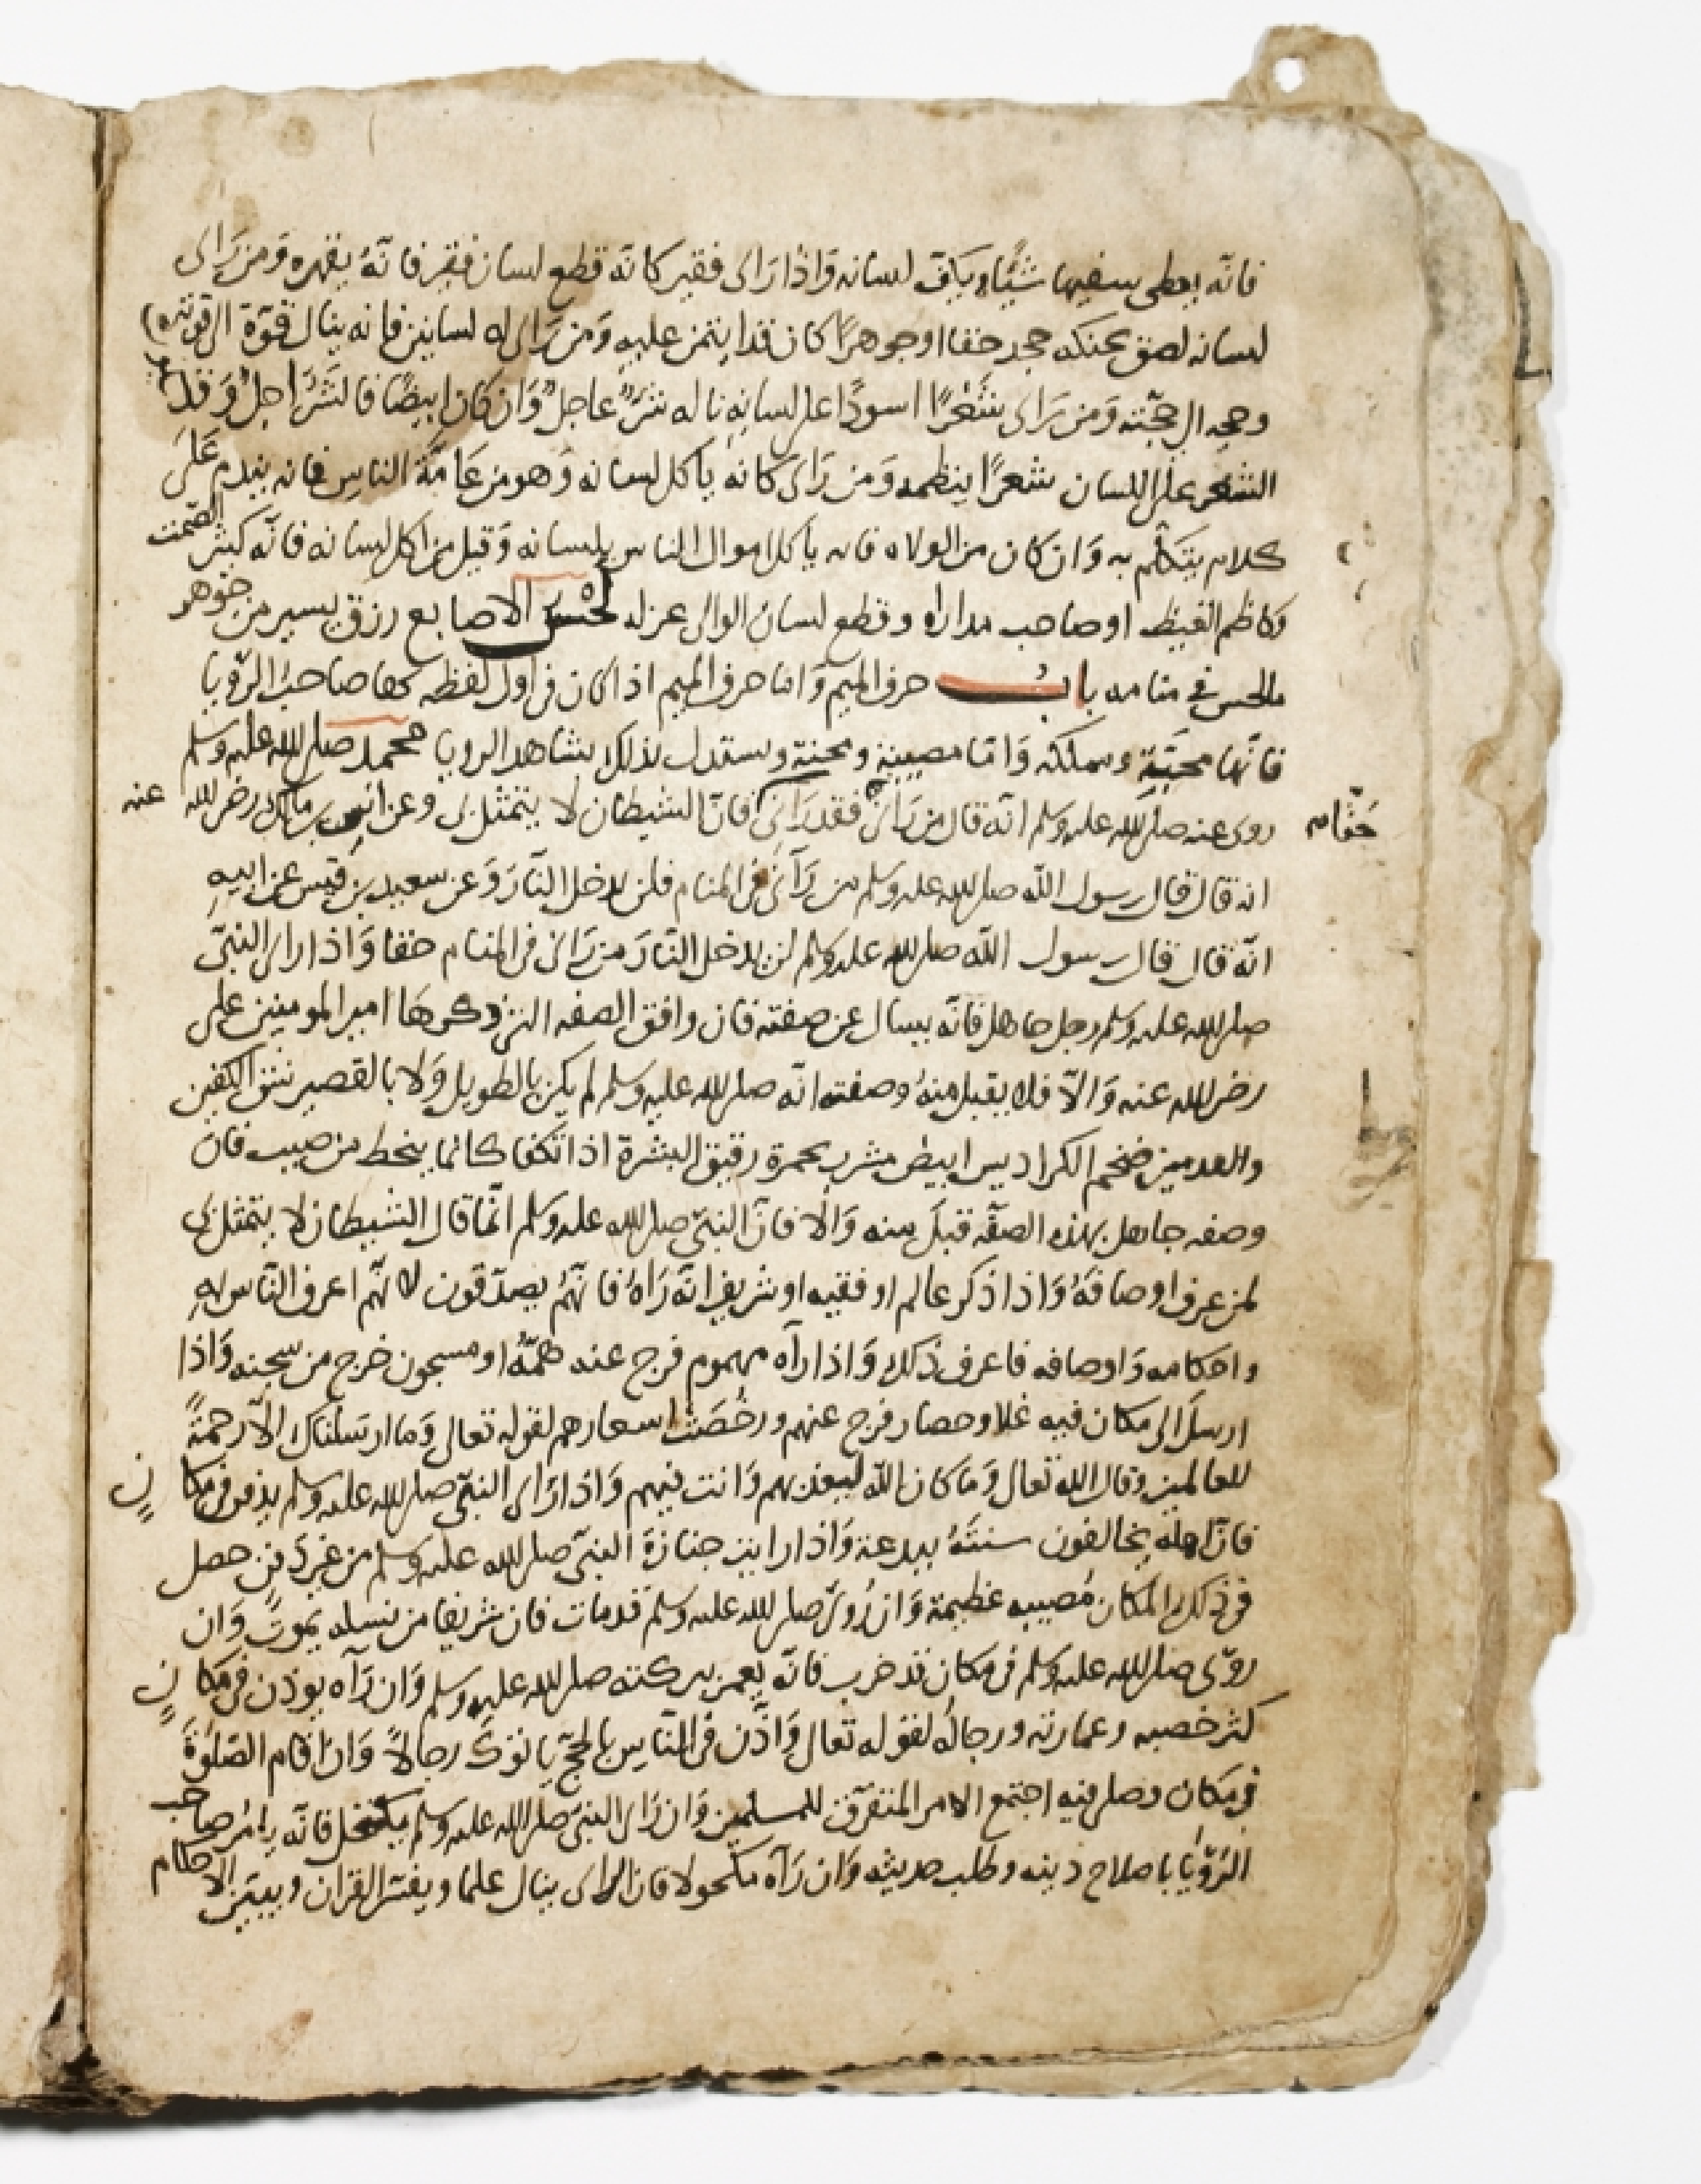 فانه يعطى سفيها شيًا ويكف لسانه واذا راى فقير كانه قطع لسان فقير فانهُ يقهره وَمن رَاى
لسانه لصق بحنكه جحد حقا او جوهرًا كان قد ايتمن عليهِ وَمن رَاى له لسانين فانه ينال قوّة الى قوته
وحجه الى حجّته وَمن رَاى شَعْرًا اسودًا على لسانهِ ناله شرٌ عاجلٌ وَان كان ابيضًا فالشَرُ اجلٌ وَقيل
الشعر على اللسان شعرًا ينظمه وَمن رَاى كانه ياكل لسانه وَهو من عَامّة الناس فانه يندم عَلَى
كلام يتكلّم به وَان كان من الولاه فانه ياكل اموال الناس بلسانه وَقيل من اكل لسانه فانّه كثير الصّمت
وكاظم الغيظ او صاحب مداراه وقطع لسان الوالى عزله لحْسُ الاصابع رزق يسير من جوهر
مالحس في منامه بابُ حرف الميم وَاما حرف الميم اذا كان فى اول لفظه صاحبُ الرّؤيا
فانّها محبّة ومملكه وَامّا مصيبة ومحنة ويستدل بذلك بشاهد الرويا محمد صلى الله عليه وسلم
روى عنه صلى الله عليه وسلم انّه قال من رَانى فقد رَانى حقّا فانّ الشيطان لا يتمثل بى وعن انس بن مالك رضى الله عنه
انه قال قال رسول الله صلى الله عليه وسلم من رَآنى فى المنام فلن يدخل النّارَ وَعن سعيد بن قيس عن ابيهِ
انّه قال قال رسول الله صلى الله عليه وسلم لن يدخل النّارَ من رَانى فى المنام حقا وَاذا راى النبىّ
صلى الله عليه وسلم رجل جاهل فانّه يسال عن صفته فان وافق الصفه التى ذكرهَا امير المومنين على
رضى الله عنه وَالّا فلا يقبل منهُ وصفته انّه صلى الله عليه وسلم لم يكن بالطويل وَلا بالقصير شثن الكفين
والقدمين ضخم الكراديس ابيض مشرب بحمرة رقيق البشرة اذا تكفا كانما ينحط من صبب فان
وصفه جاهل بهذه الصّفّه قبلَ منه وَالّا فانّ النبىّ صلى الله عليه وسلم انّما قال الشيطان لا يتمثل بى
لمن عرف اوصافهُ وَاذا ذكر عالم او فقيه او شريف انّه رَاهُ فانّهُم يصدّقون لانّهم اعرف النّاس بهِ
واحكامه وَاوصافه فاعرف ذلك وَاذا رآه مهموم فرج عنه همّهُ او مسجون خرج من سجنه وَاذا
ارسلَ الى مكان فيه غلا وحصار فرج عنهم ورخُصَت اسعارهم لقوله تعالى وَما ارسَلناك الّا رحمةً
للعالمين وقال الله تعالى وَما كان الله ليعذبهم وَانت فيهم وَاذا رَاى النبىّ صلى الله عليه وسلم يدفن فى مكانٍ
فانّ اهله يخالفون سنتَهُ ببدعة وَاذا رايت جنازة النبىّ صلى الله عليه وسلم من غير دفن حصل
فى ذلك المكان مُصيبه عظيمة وَان رُوىَ صلى الله عليه وسلم قد مات فان شريفا من نسله يموتُ وَان
روّى صلى الله عليه وسلم فى مكان قد خرب فانّه يعمر ببركته صلى الله عليه وسلم وَان رَآه يوذن فى مكانٍ
كثر خصبه وعمارته ورجالُه لقوله تعالى وَاذّن فى النّاس بالحجّ ياتوكَ رجالاً وَان اقام الصّلوةَ
فى مكان وصلى فيه اجتمع الامر المتفرّق للمسلمين وَان رَاى النبىّ صلى الله عليه وسلم يكتحل فانّه يامُر صاحب
الرّؤيَا باصلاح دينه وطلب حديثه وَان رَآه مكحولا فان الراى ينال علمًا ويفسّر القران ويبين الاحكام